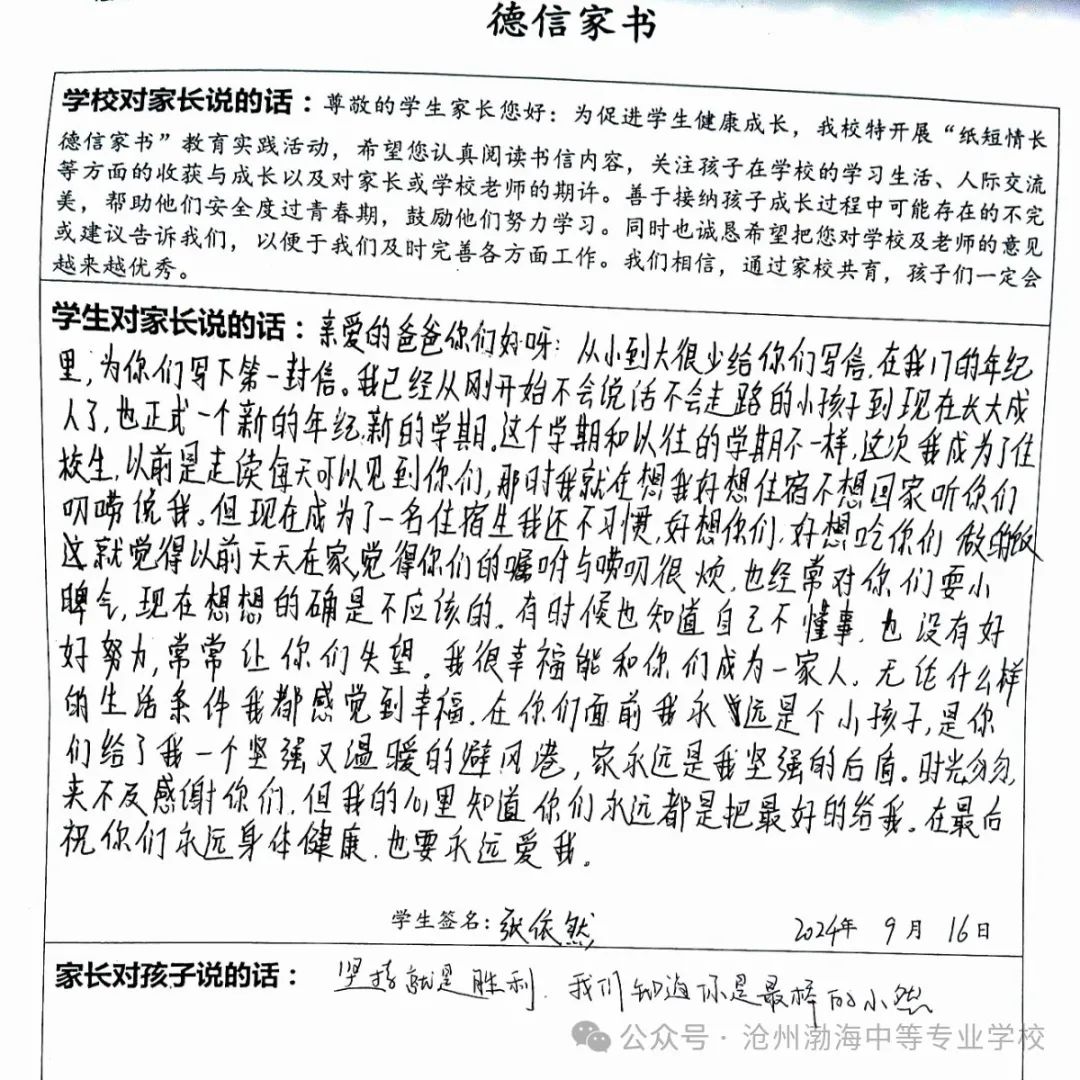 德信家书
学校对家长说的话：尊敬的学生家长您好：为促进学生健康成长，我校特开展“纸短情长
德信家书”教育实践活动，希望您认真阅读书信内容，关注孩子在学校的学习生活、人际交流
等方面的收获与成长以及对家长或学校老师的期许。善于接纳孩子成长过程中可能存在的不完
美，帮助他们安全度过青春期，鼓励他们努力学习。同时也诚恳希望把您对学校及老师的意见
或建议告诉我们，以便于我们及时完善各方面工作。我们相信，通过家校共育，孩子们一定会
越来越优秀。
学生对家长说的话：亲爱的爸爸你们好呀：从小到大很少给你们写信，在我17的年纪
里，为你们写下第一封信。我已经从刚开始不会说话不会走路的小孩子到现在长大成
人了，也正式一个新的年纪，新的学期。这个学期和以往的学期不一样，这次我成为了住
校生，以前是走读每天可以见到你们，那时我就在想我好想住宿不想回家听你们
叨唠说我。但现在成为了一名住宿生我还不习惯，好想你们，好想吃你们做的饭
这就觉得以前天天在家，觉得你们的嘱咐与唠叨很烦，也经常对你们耍小
脾气，现在想想的确是不应该的。有时候也知道自己不懂事，也没有好
好努力，常常让你们失望。我很幸福能和你们成为一家人。无论什么样
的生活条件我都感觉到幸福，在你们面前我永远是个小孩子，是你
们给了我一个坚强又温暖的避风港，家永远是我坚强的后盾。时光匆匆
来不及感谢你们，但我的心里知道你们永远都是把最好的给我。在最后
祝你们永远身体健康，也要永远爱我。
学生签名：张依然 2024年 9月 16日
家长对孩子说的话： 坚持就是胜利，我们知道你是最棒的小然
公众号·沧州渤海中等专业学校